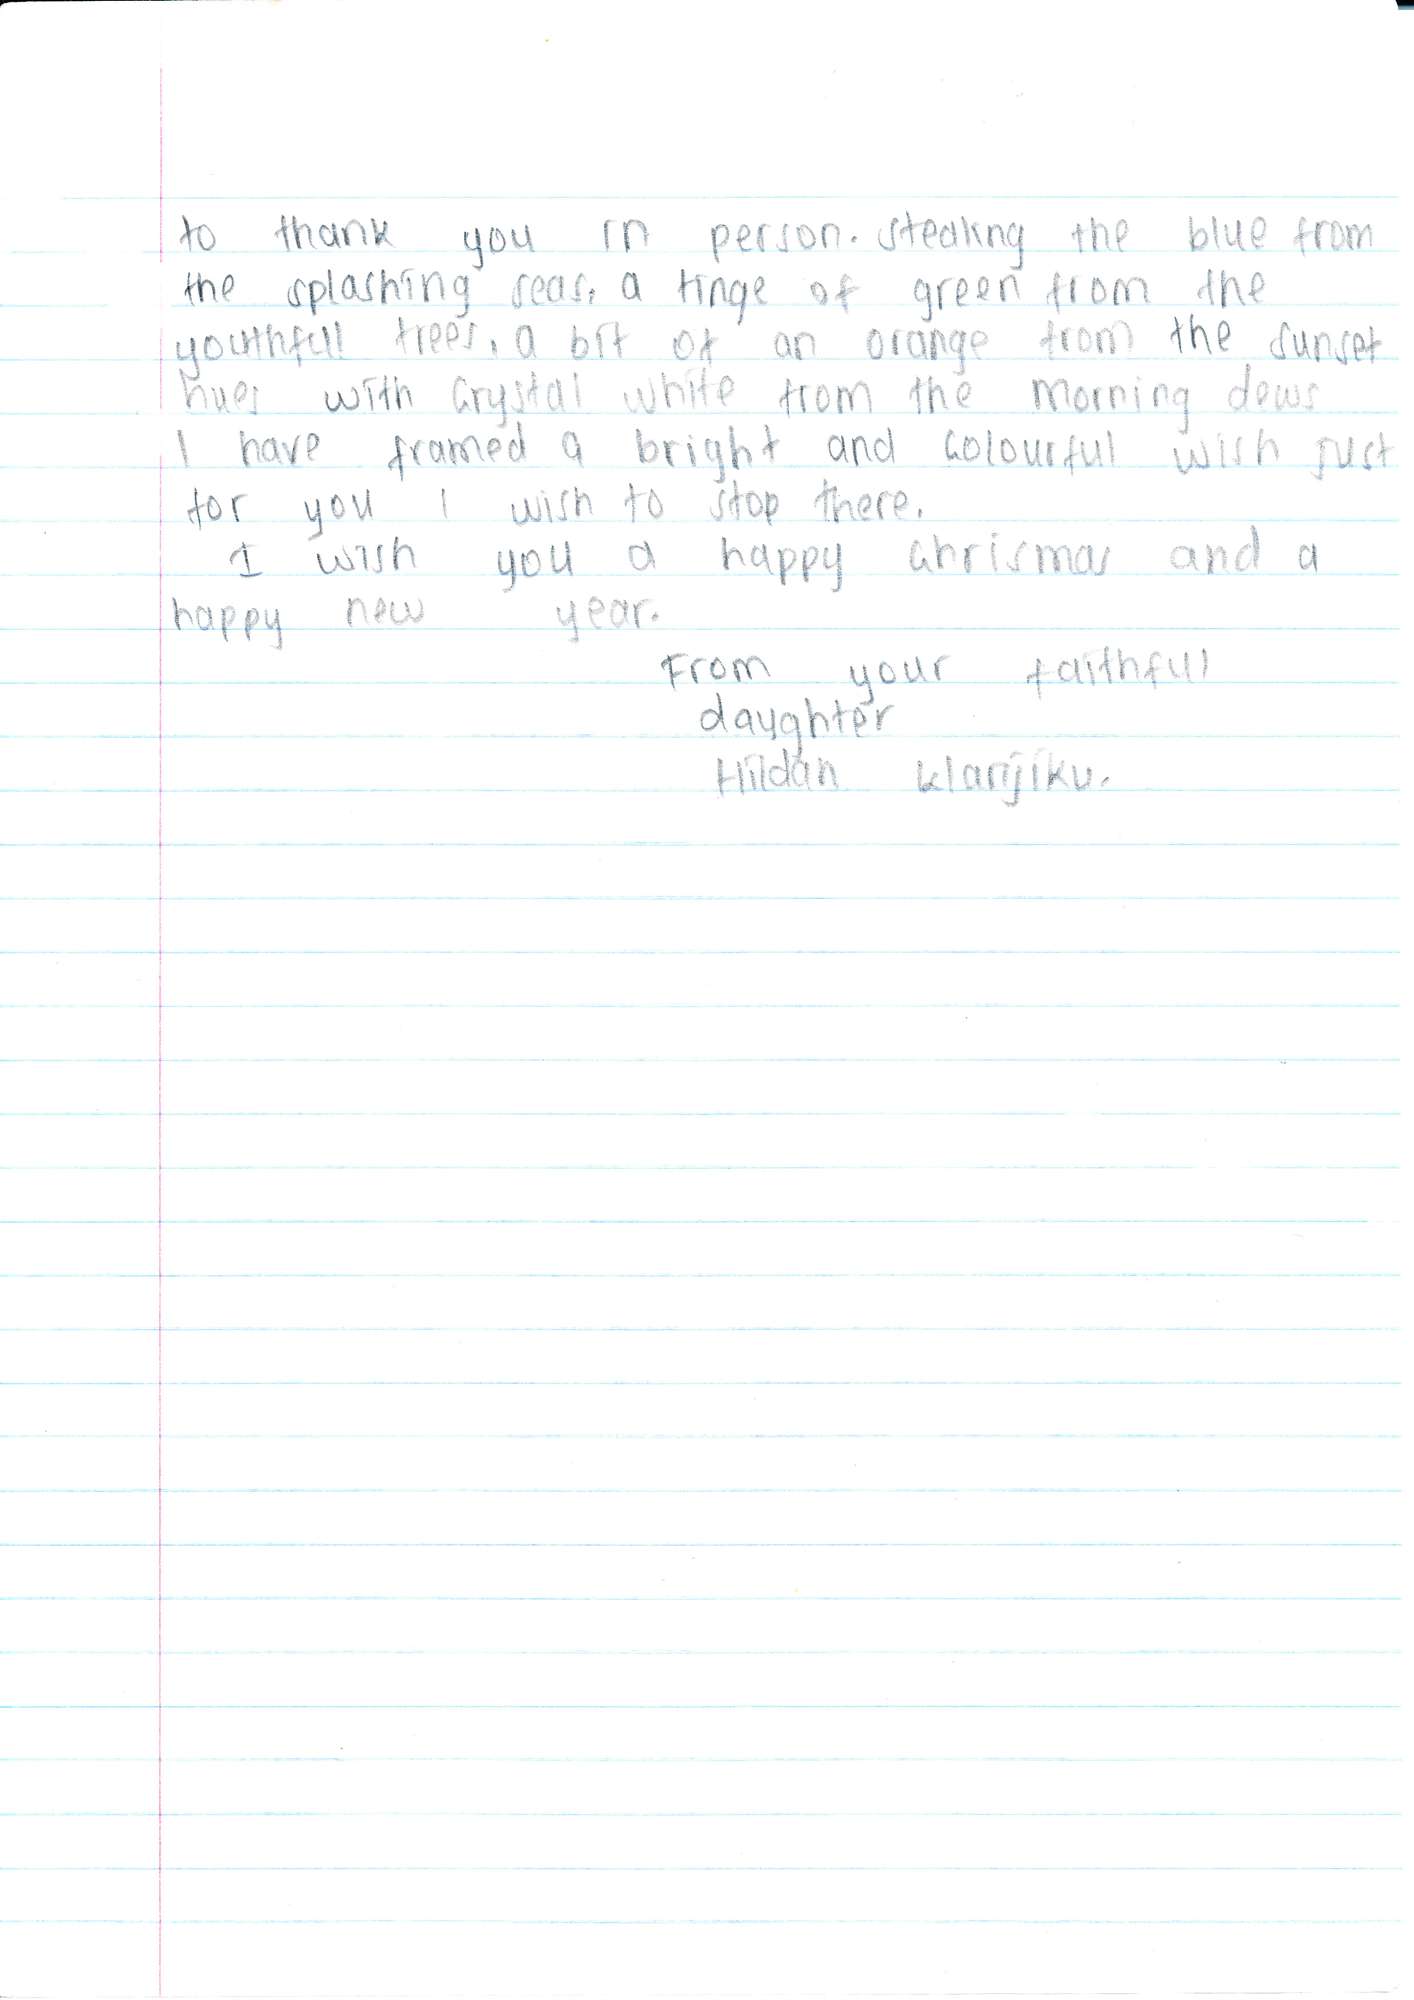 to thank you in person. stealing the blue from
the splashing seas, a tinge of green from the
youthfull trees, a bit of an orange from the sunset
hues with crystal white from the morning dews
I have framed a bright and colourful wish just
for you I wish to stop there.
I wish you a happy chrismas and a
happy new year.
From your faithfull
daughter
Hildan